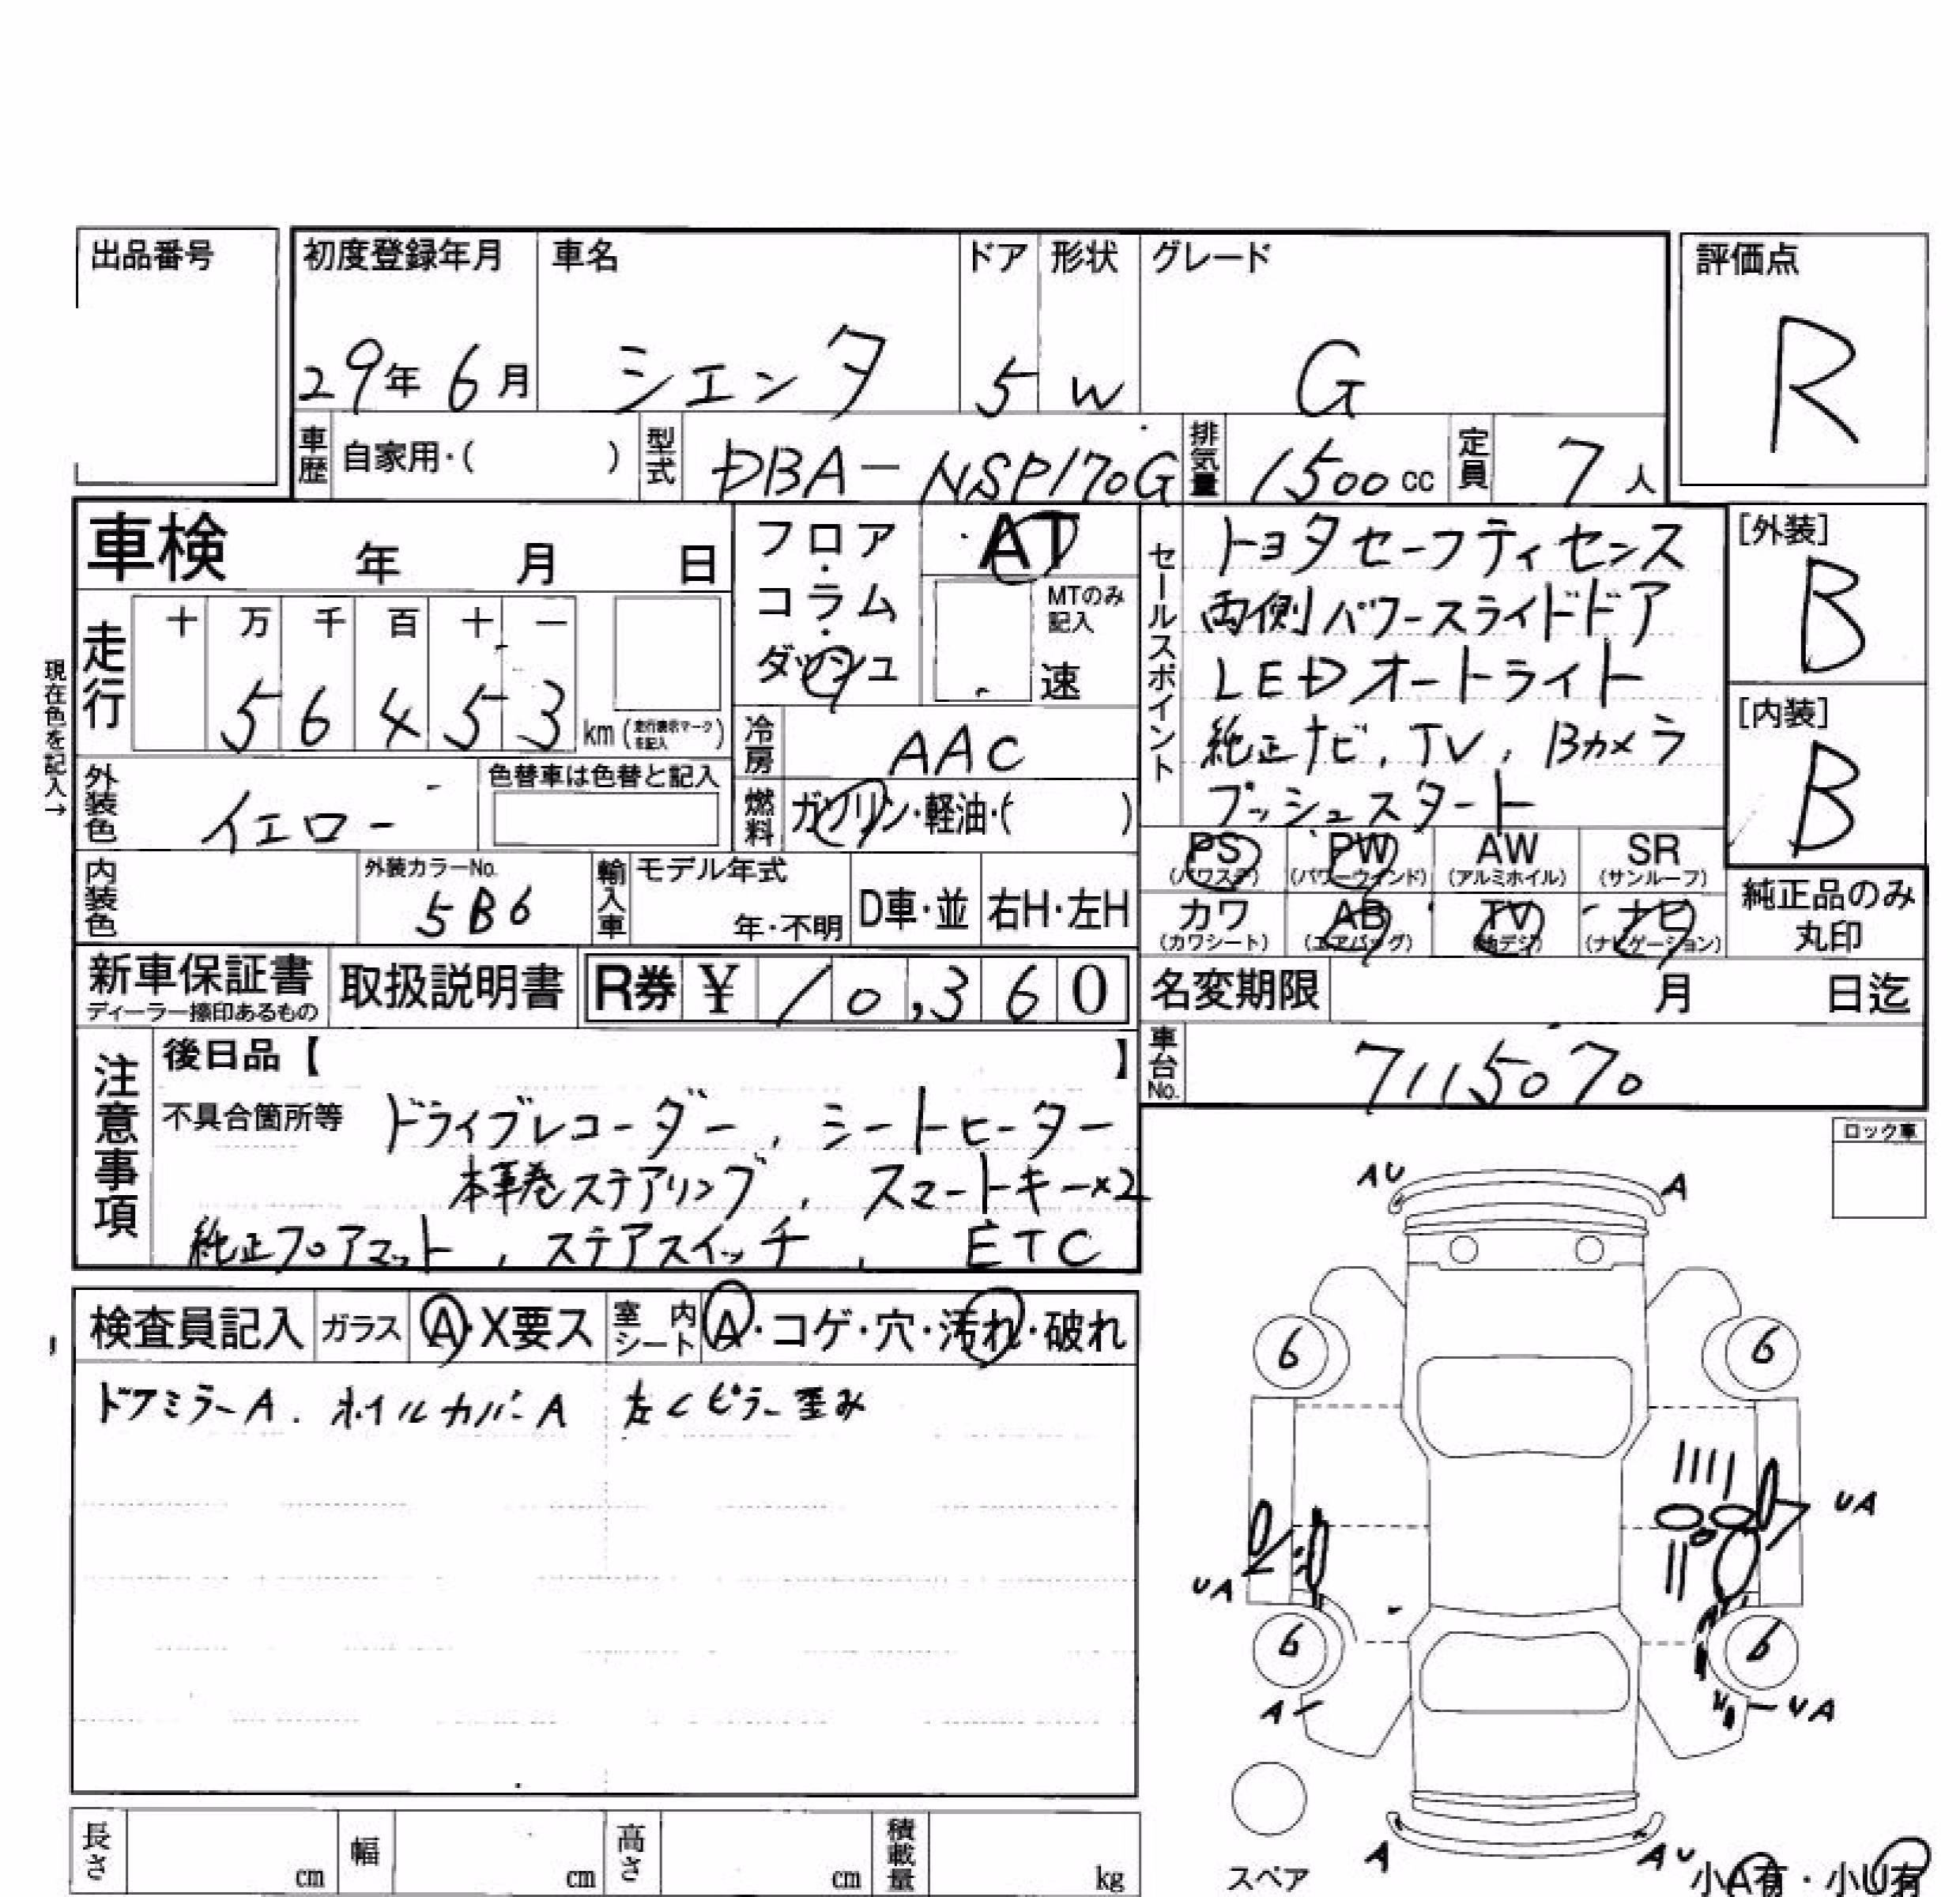 出品番号
初度登録年月 車名 ドア 形状 グレード 評価点
29年 6月 シエンタ 5 W G R
車歴 自家用・( ) 型式 DBA-NSP170G 排気量 1500cc 定員 7人
車検 年 月 日
フロア・コラム・ダッシュ AT
MTのみ記入 速
走行 十 万 千 百 十 一
5 6 4 5 3 km (走行表示マークを記入)
現在色を記入→
外装色 イエロー 色替車は色替と記入
冷房 AAC
燃料 ガソリン・軽油・( )
セールスポイント
トヨタセーフティセンス
両側パワースライドドア
LEDオートライト
純正ナビ, TV, Bカメラ
プッシュスタート
[外装] B
[内装] B
内装色 外装カラーNo. 5B6 輸入車 モデル年式 年・不明 D車・並 右H・左H
PS (パワステ) PW (パワーウインド) AW (アルミホイル) SR (サンルーフ)
カワ (カワシート) AB (エアバッグ) TV (地デジ) ナビ (ナビゲーション)
純正品のみ丸印
新車保証書 ディーラー捺印あるもの 取扱説明書 R券 ¥ 10,360
名変期限 月 日迄
車台No. 7115070
注意事項
後日品【 】
不具合箇所等 ドライブレコーダー, シートヒーター
本革巻ステアリング, スマートキー×2
純正フロアマット, ステアスイッチ, ETC
ロック車
検査員記入 ガラス A・X要ス 室内シート A・コゲ・穴・汚れ・破れ
ドアミラーA. ホイルカバーA 左Cピラー歪み
AU A
6 6
UA UA
6 6
A UA
A AU
スペア
小A有・小U有
長さ cm 幅 cm 高さ cm 積載量 kg